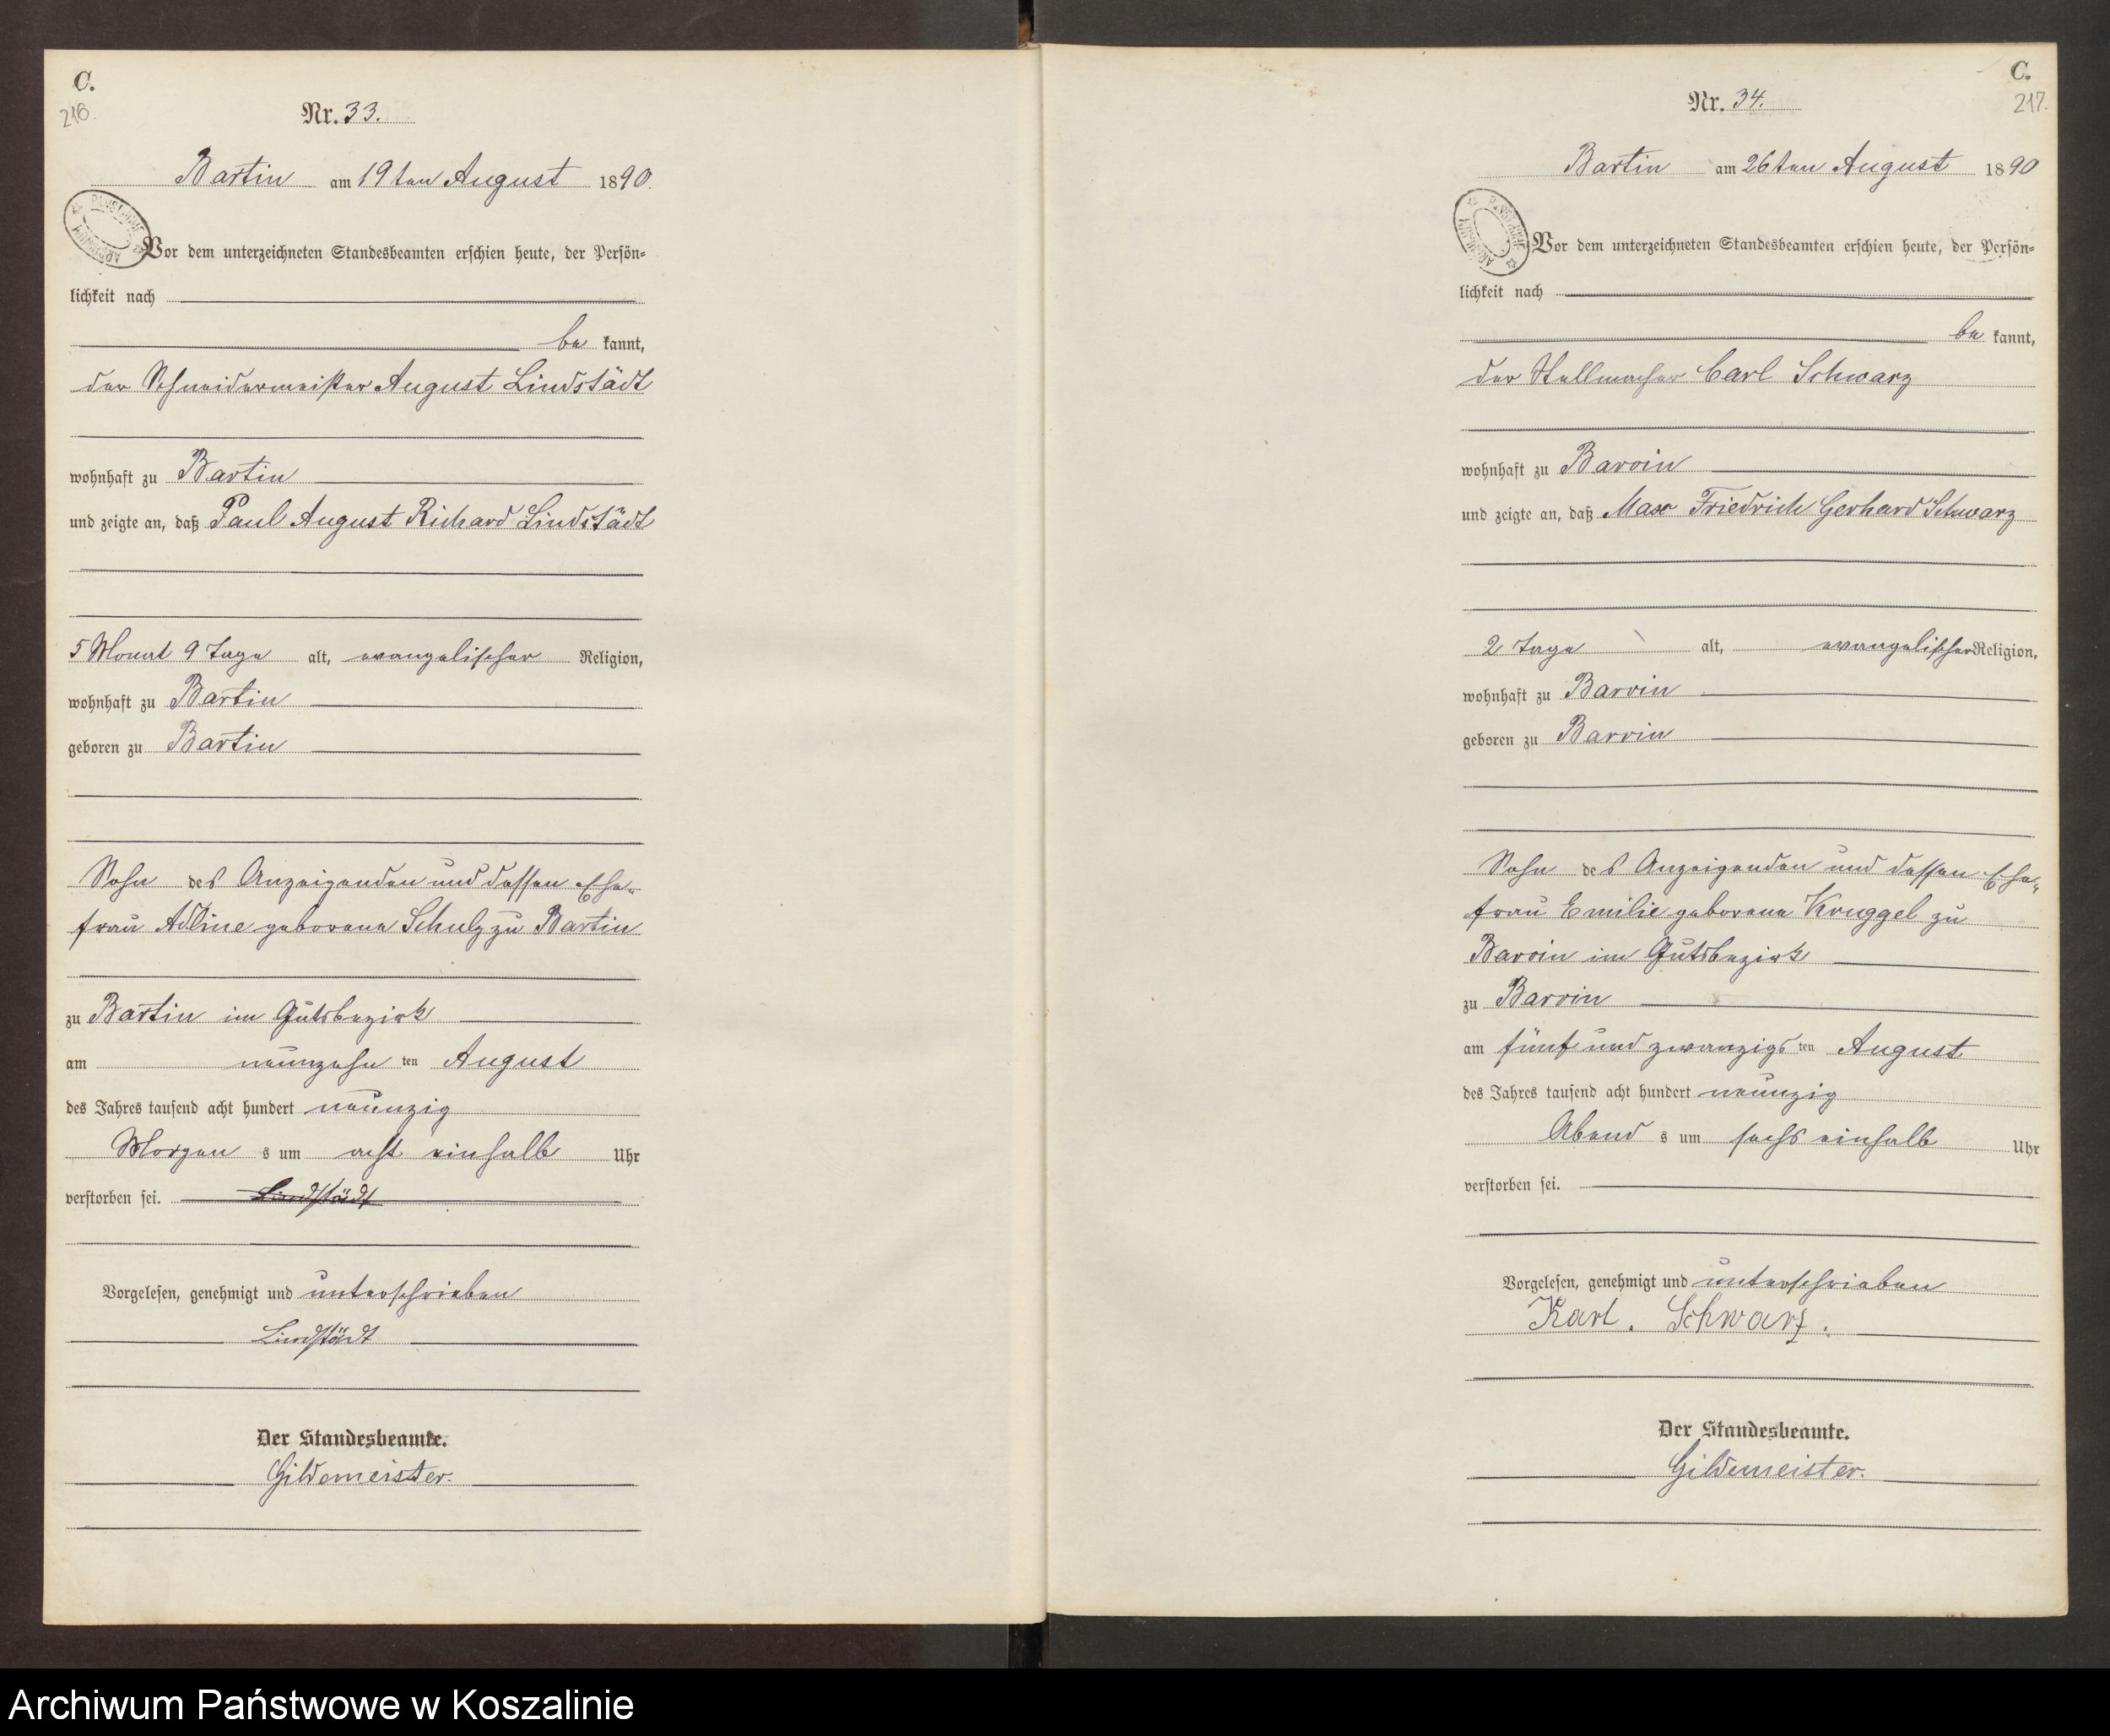 C.
216.
Nr. 33.
Bartin am 19ten August 1890.
Vor dem unterzeichneten Standesbeamten erschien heute, der Persön-
lichkeit nach
be kannt,
der Schneidermeister August Lindstädt
wohnhaft zu Bartin
und zeigte an, daß Paul August Richard Lindstädt
5 Monat 9 Tage alt, evangelischer Religion,
wohnhaft zu Bartin
geboren zu Bartin
Sohn des Anzeigenden und dessen Ehe-
frau Adline geborene Schulz zu Bartin
zu Bartin im Gutsbezirk
am neunzehn ten August
des Jahres tausend acht hundert neunzig
Morgen s um acht einhalb Uhr
verstorben sei. Lindstädt
Vorgelesen, genehmigt und unterschrieben
Lindstädt
Der Standesbeamte.
Gildemeister.
C.
217.
Nr. 34.
Bartin am 26ten August 1890
Vor dem unterzeichneten Standesbeamten erschien heute, der Persön-
lichkeit nach
be kannt,
der Stellmacher Carl Schwarz
wohnhaft zu Barvin
und zeigte an, daß Max Friedrich Gerhard Schwarz
2 Tage alt, evangelischer Religion,
wohnhaft zu Barvin
geboren zu Barvin
Sohn des Anzeigenden und dessen Ehe-
frau Emilie geborene Kruggel zu
Barvin im Gutsbezirk
zu Barvin
am fünf und zwanzigs ten August
des Jahres tausend acht hundert neunzig
Abend s um sechs einhalb Uhr
verstorben sei.
Vorgelesen, genehmigt und unterschrieben
Karl. Schwarz.
Der Standesbeamte.
Gildemeister.
Archiwum Państwowe w Koszalinie